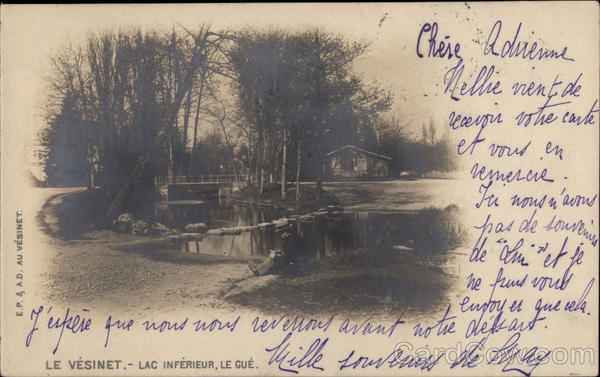 Chère Adrienne
Nellie vient de
recevoir votre carte
et vous en
remercie.
Ici nous n'avons
pas de souvenirs
de " " et je
ne puis vous
envoyer que cela.
J'espère que nous nous reverrons avant notre départ.
Mille souvenirs de
E.P. & A.D. AU VÉSINET.
LE VÉSINET. - LAC INFÉRIEUR, LE GUÉ.
CardCow.com